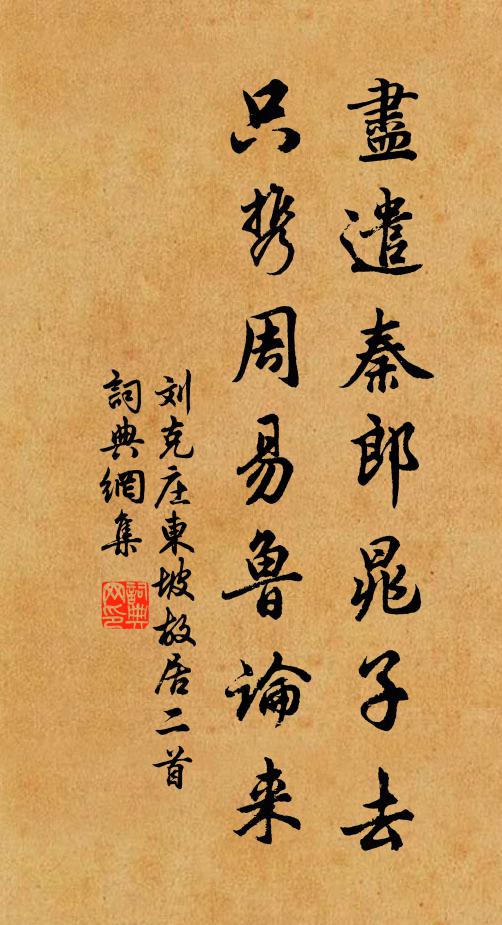 盡遣秦郎晁子去
只携周易魯論来
刘克庄東坡故居二首
詞典網集
詞典网印